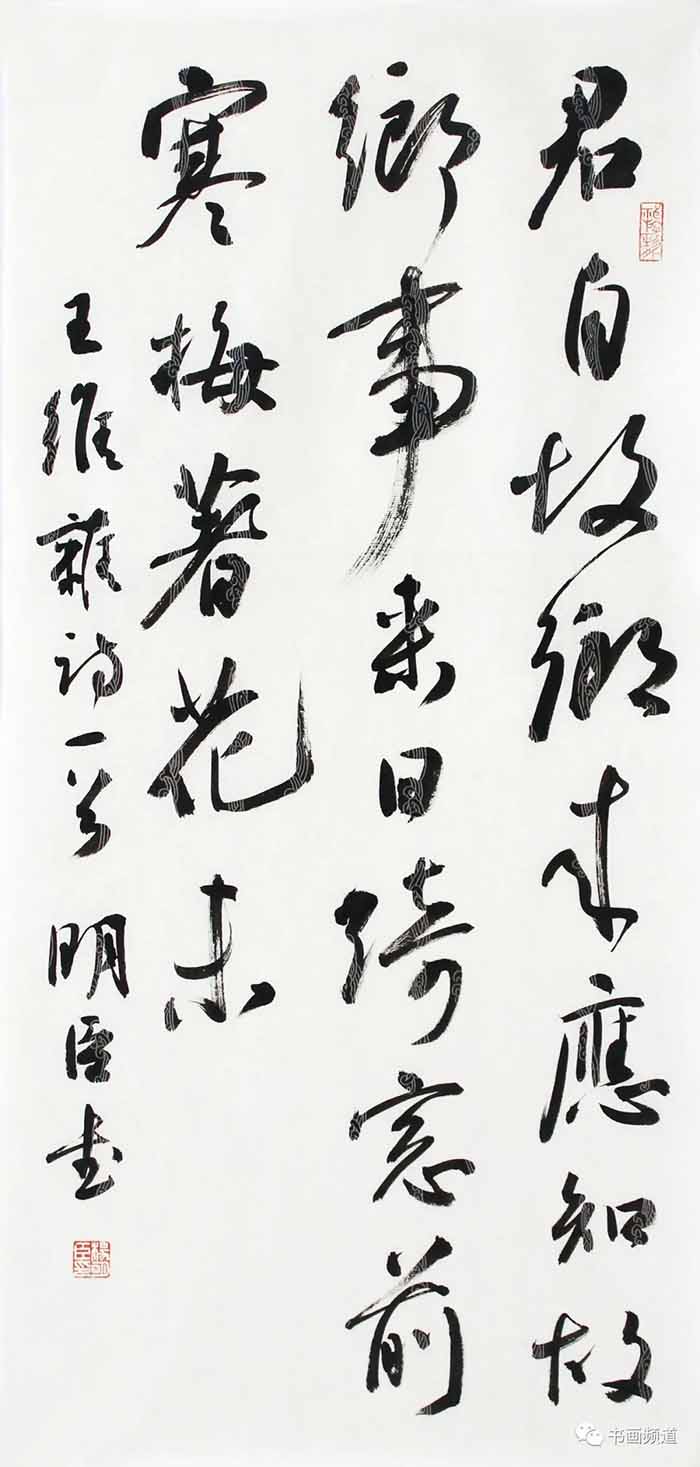 君自故鄉來應知故
鄉事來日綺窓前
寒梅著花未
王維雜诗一首 明臣书
楊明臣印
书画频道